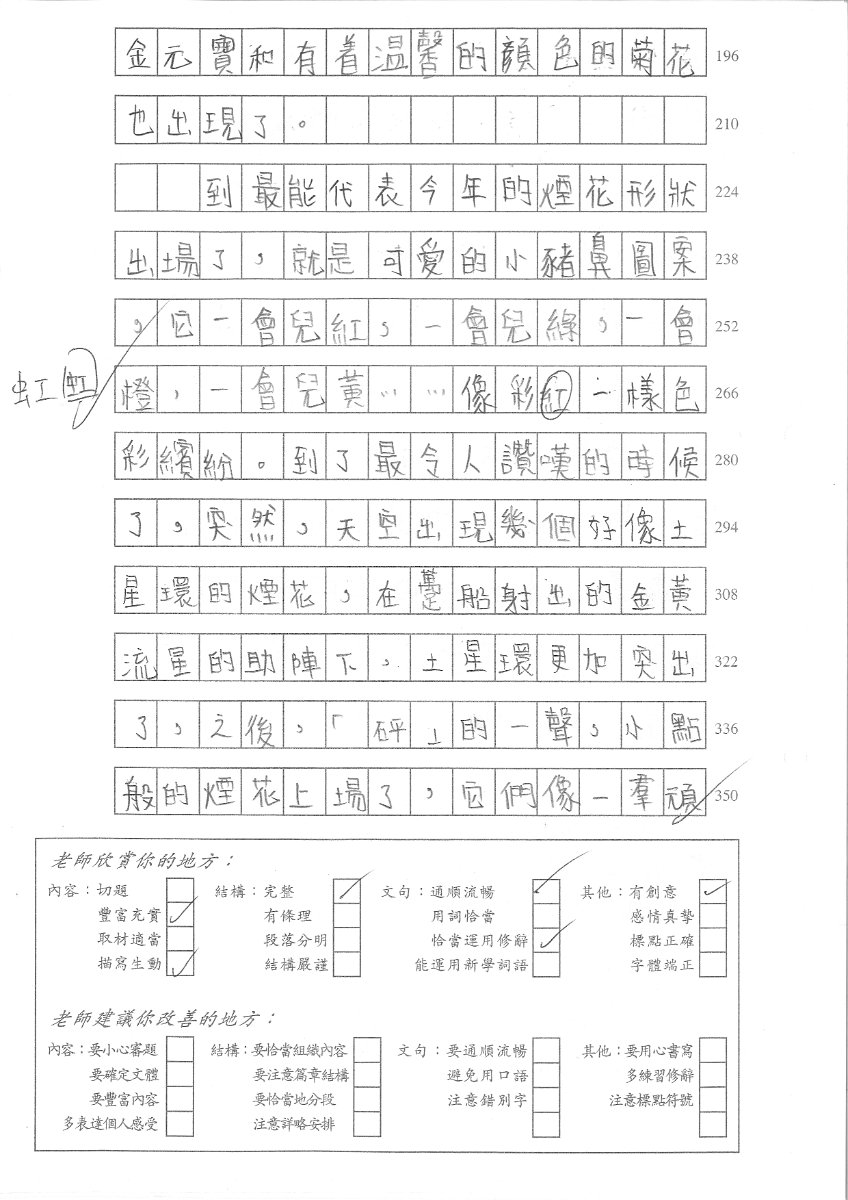 金元寶和有着温馨的顏色的菊花 196
也出現了。 210
到最能代表今年的煙花形狀 224
出場了，就是可愛的小豬鼻圖案 238
，它一會兒紅，一會兒綠，一會 252
虹虹 橙，一會兒黃……像彩紅一樣色 266
彩繽紛。到了最令人讚嘆的時候 280
了，突然，天空出現幾個好像土 294
星環的煙花，在躉船射出的金黃 308
流星的助陣下，土星環更加突出 322
了，之後，「砰」的一聲，小點 336
般的煙花上場了，它們像一羣頑 350
老師欣賞你的地方：
內容：切題 結構：完整 文句：通順流暢 其他：有創意
豐富充實 有條理 用詞恰當 感情真摯
取材適當 段落分明 恰當運用修辭 標點正確
描寫生動 結構嚴謹 能運用新學詞語 字體端正
老師建議你改善的地方：
內容：要小心審題 結構：要恰當組織內容 文句：要通順流暢 其他：要用心書寫
要確定文體 要注意篇章結構 避免用口語 多練習修辭
要豐富內容 要恰當地分段 注意錯別字 注意標點符號
多表達個人感受 注意詳略安排